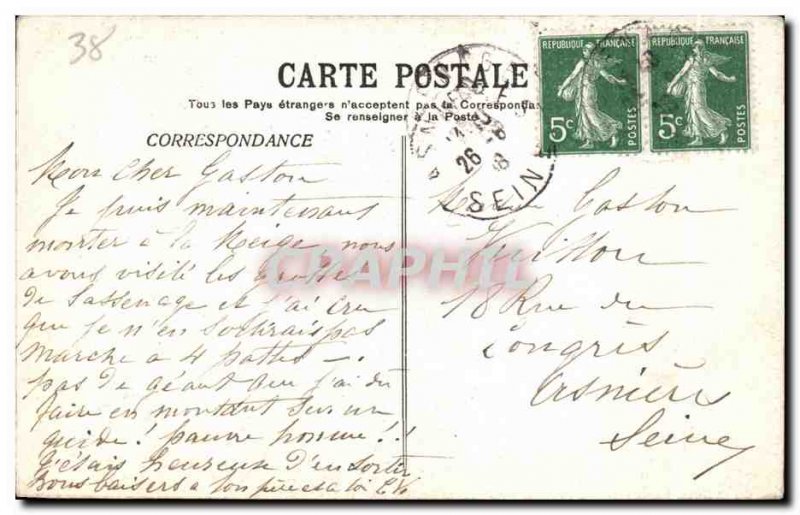 38
CARTE POSTALE
Tous les Pays étrangers n'acceptent pas la Correspondan
Se renseigner à la Poste
CORRESPONDANCE
REPUBLIQUE FRANÇAISE
5c
POSTES
REPUBLIQUE FRANÇAISE
5c
POSTES
26
SEINE
CPAPHIL
Mon cher Gaston
Je puis maintenant
monter à la Neige nous
avons visité les grottes
de Sassenage et j'ai cru
que je n'en sortirais pas
marche a 4 pattes —.
pas de géant que j'ai du
faire en montant sur un
guide! pauvre homme!!
J'étais heureuse d'en sortir
Bons baisers a ton père et a toi
Gaston
Vuitton
18 Rue du
Congrès
Asnières
Seine